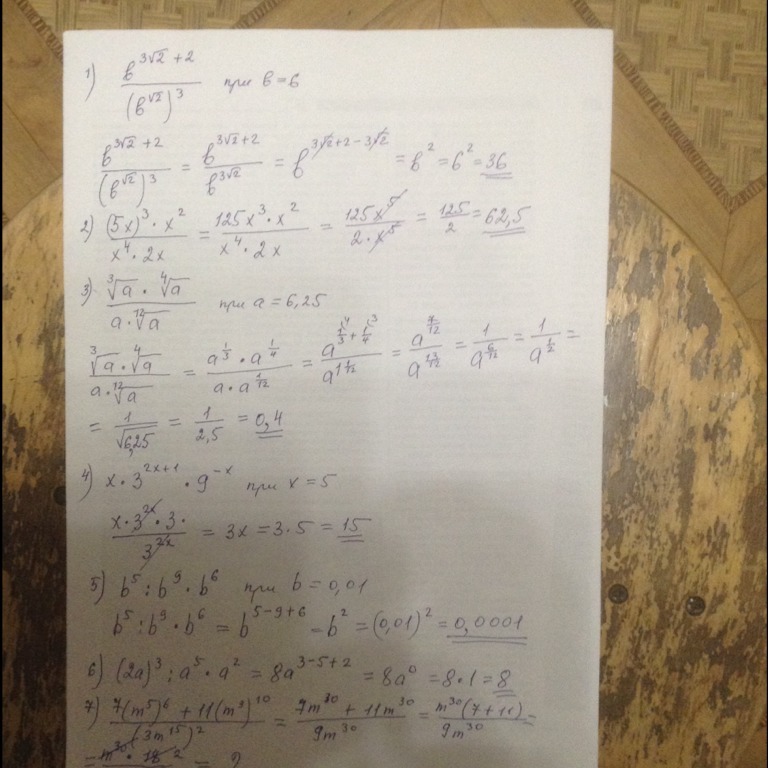 1) b^(3√2+2) / (b^√2)^3 при b=6
b^(3√2+2) / (b^√2)^3 = b^(3√2+2) / b^(3√2) = b^(3√2+2-3√2) = b^2 = 6^2 = 36
2) (5x)^3 · x^2 / (x^4 · 2x) = 125x^3 · x^2 / (x^4 · 2x) = 125x^5 / (2 · x^5) = 125/2 = 62,5
3) ∛a · ∜a / (a · ¹²√a) при a = 6,25
∛a · ∜a / (a · ¹²√a) = a^(1/3) · a^(1/4) / (a · a^(1/12)) = a^(1/3+1/4) / a^(1 1/12) = a^(7/12) / a^(13/12) = 1 / a^(6/12) = 1 / a^(1/2) =
= 1/√6,25 = 1/2,5 = 0,4
4) x · 3^(2x+1) · 9^(-x) при x = 5
x · 3^(2x) · 3 · / 3^(2x) = 3x = 3·5 = 15
5) b^5 : b^9 · b^6 при b = 0,01
b^5 : b^9 · b^6 = b^(5-9+6) = b^2 = (0,01)^2 = 0,0001
6) (2a)^3 : a^5 · a^2 = 8a^(3-5+2) = 8a^0 = 8·1 = 8
7) 7(m^5)^6 + 11(m^3)^10 / (3m^15)^2 = 7m^30 + 11m^30 / 9m^30 = m^30(7+11) / 9m^30 =
= m^30 · 18 2 / = 2